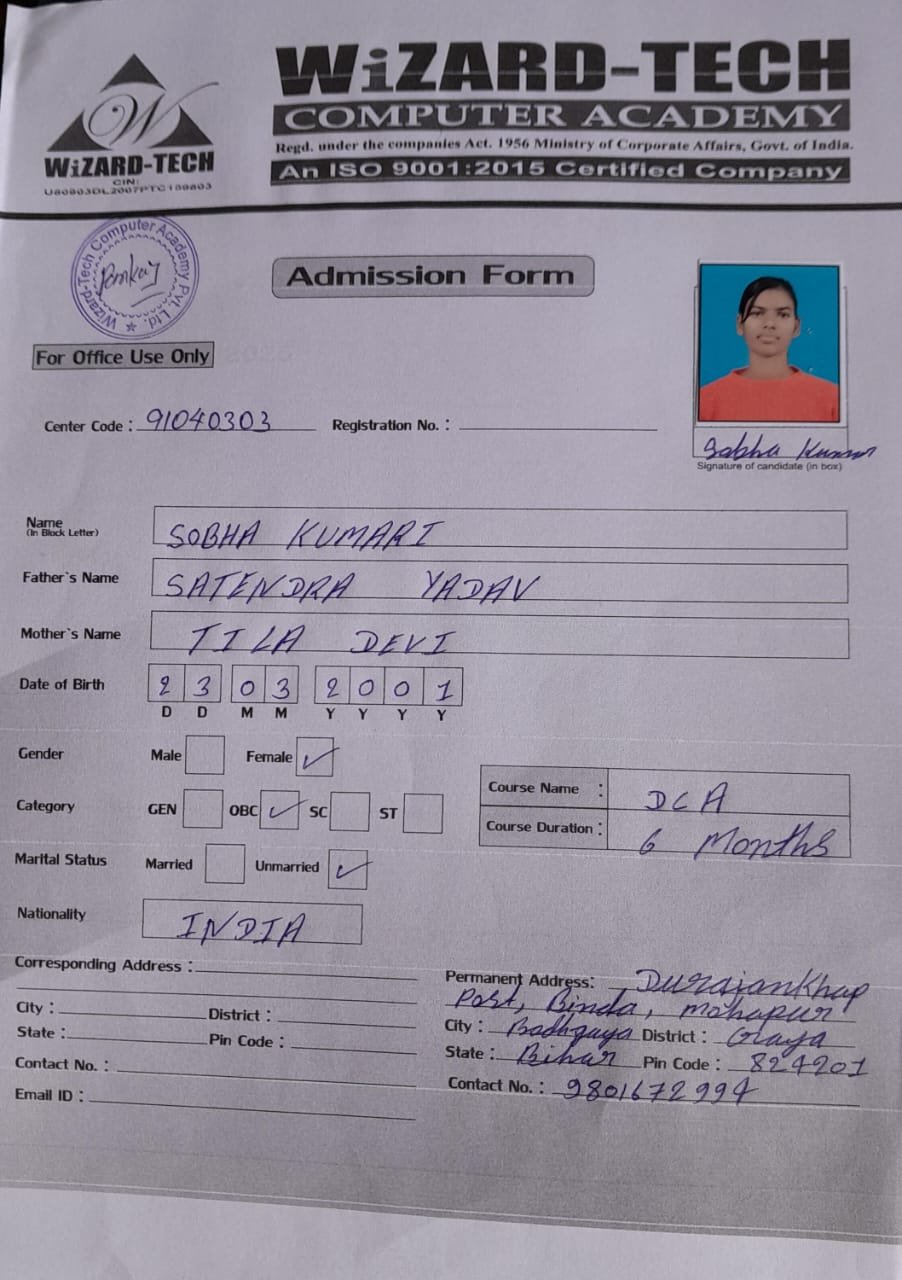 WiZARD-TECH
COMPUTER ACADEMY
Regd. under the companies Act. 1956 Ministry of Corporate Affairs, Govt. of India.
An ISO 9001:2015 Certified Company
W
WiZARD-TECH
CIN:
Wizard-Tech Computer Academy Pvt. Ltd.
Admission Form
For Office Use Only
Center Code : 91040303 Registration No. :
Sobha Kumari
Signature of candidate (in box)
Name SOBHA KUMARI
(In Block Letter)
Father`s Name SATENDRA YADAV
Mother`s Name TILA DEVI
Date of Birth 23 03 2001
D D M M Y Y Y Y
Gender Male Female ✓
Category GEN OBC ✓ SC ST
Course Name : DCA
Course Duration : 6 Months
Marital Status Married Unmarried ✓
Nationality INDIA
Corresponding Address :
City : District :
State : Pin Code :
Contact No. :
Email ID :
Permanent Address:
Post, Binda, Mohapur
City : Bodhgaya District : Gaya
State : Bihar Pin Code : 824201
Contact No. : 9801672994